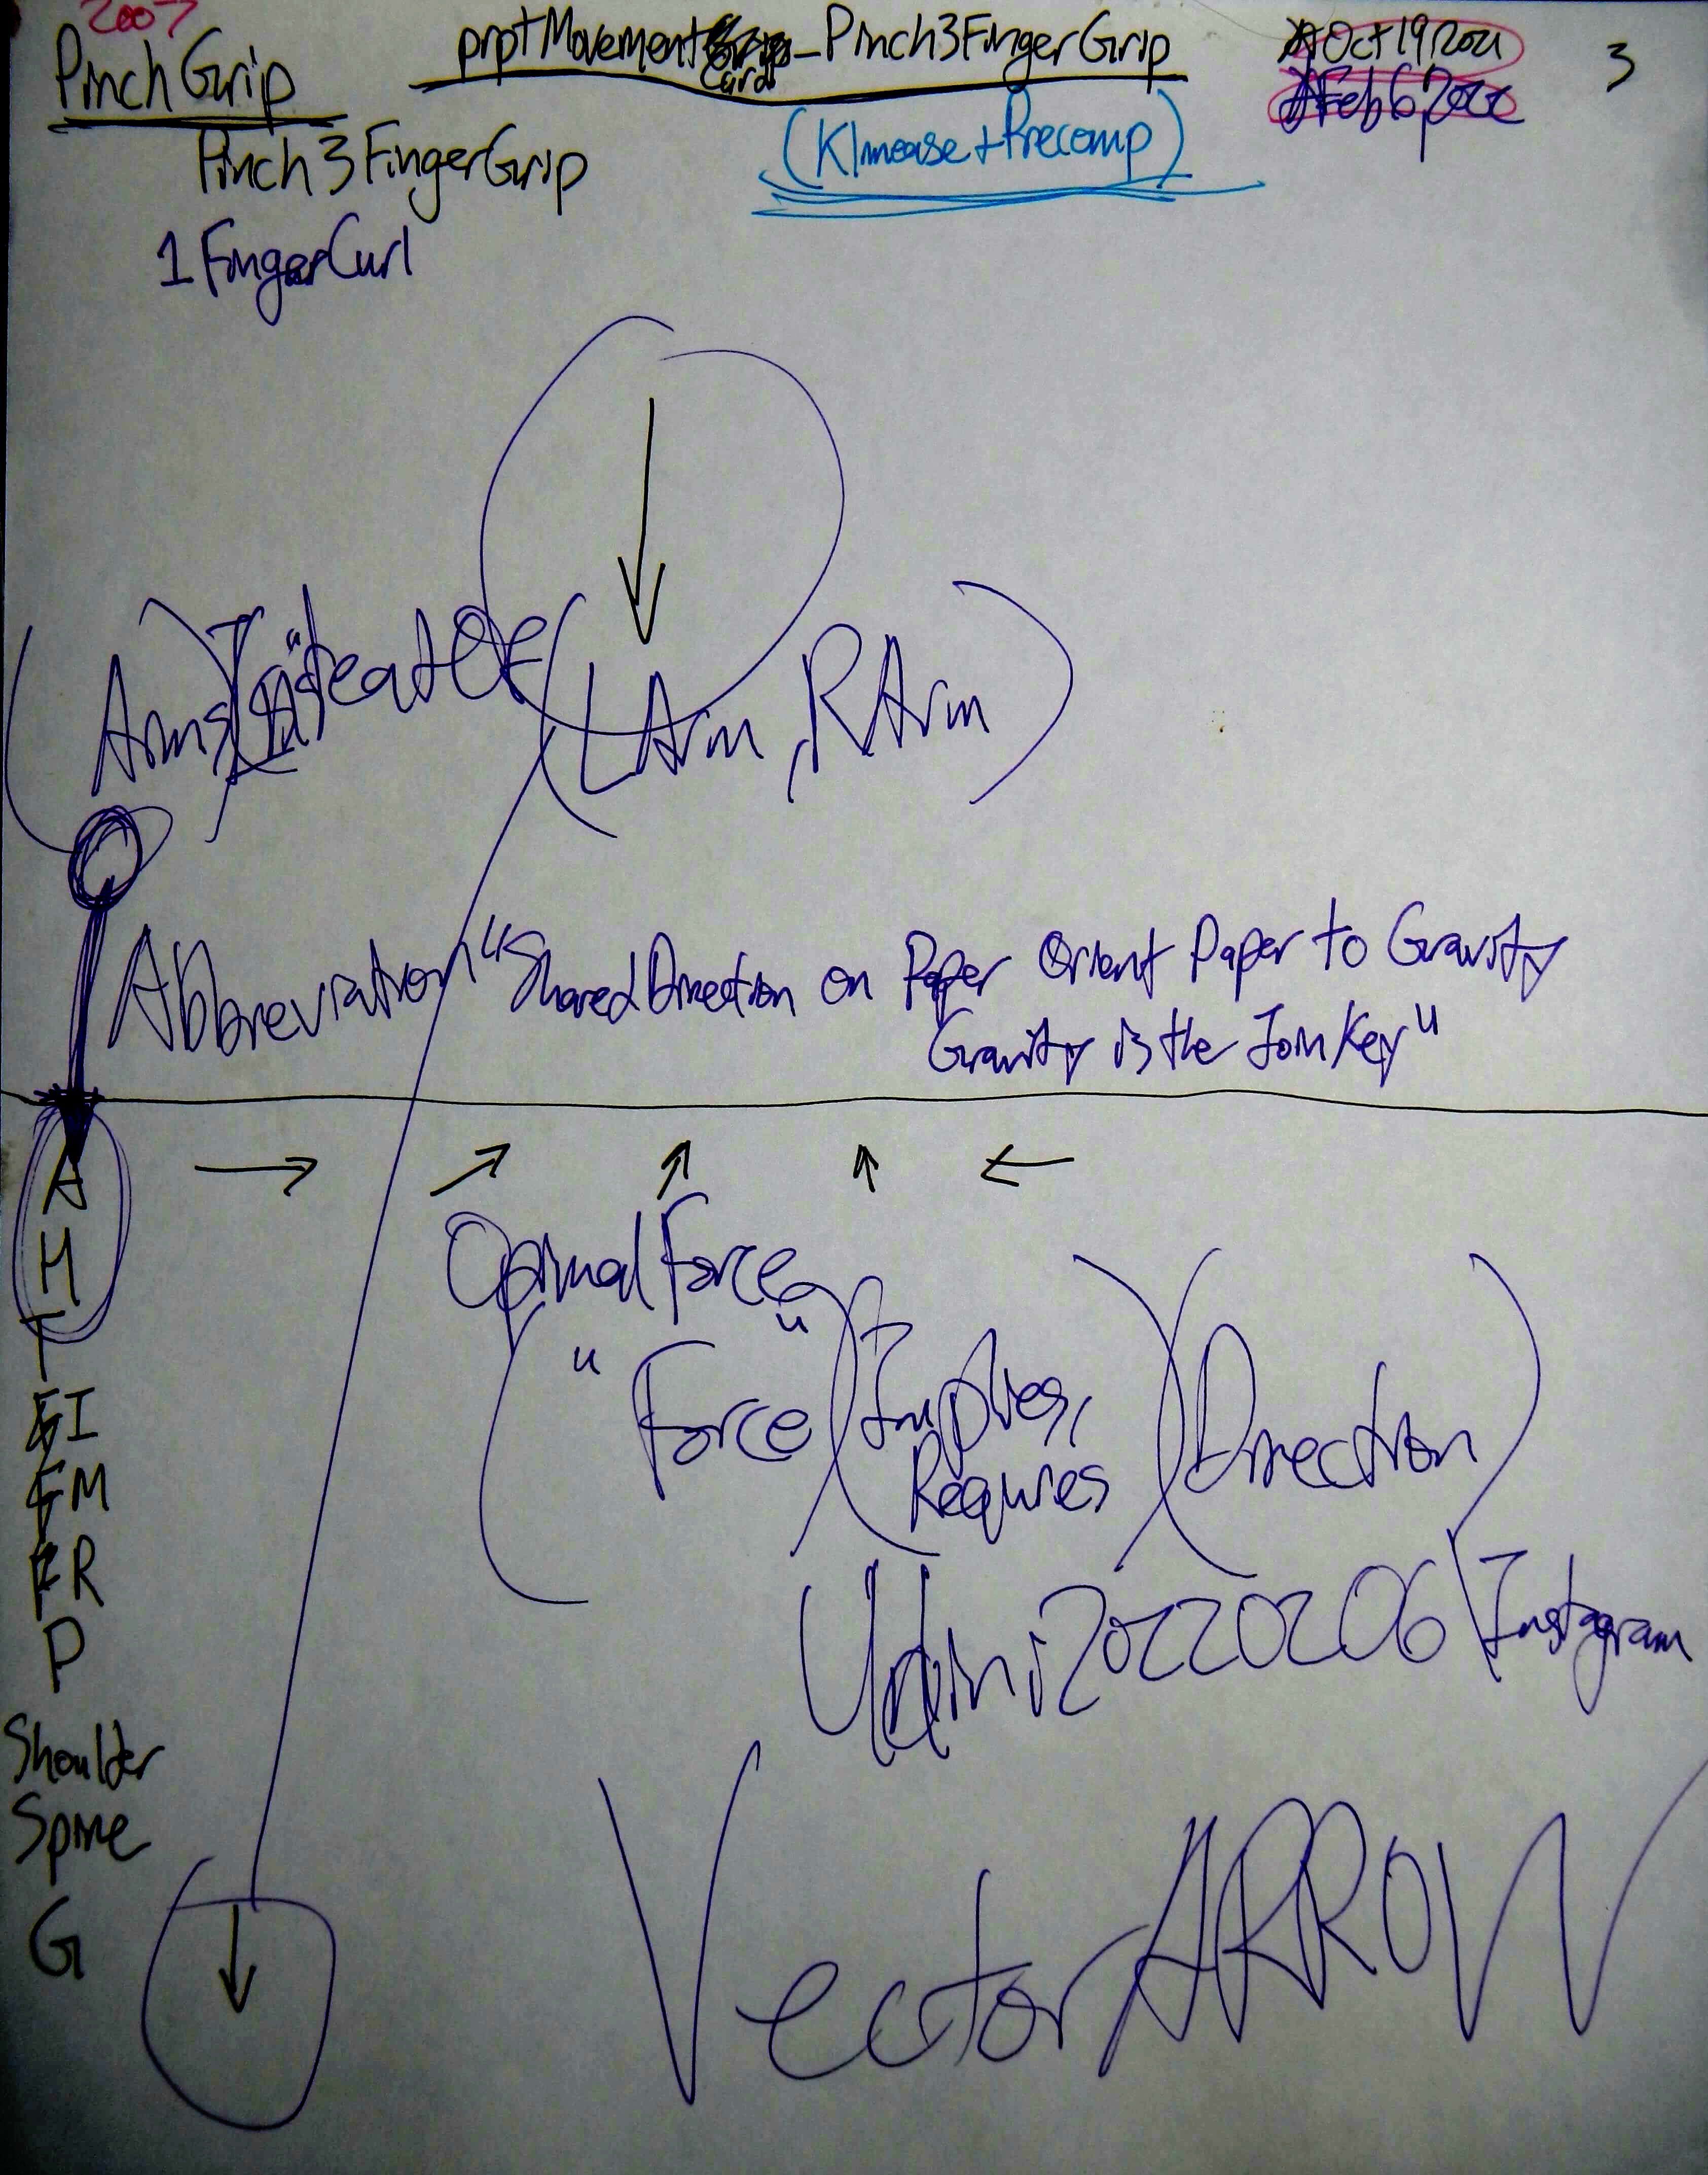 2007
PinchGrip
prptMovement Card_Pinch3FingerGrip
Oct 19 2021
3
Feb 6 2022
Pinch3FingerGrip
(Precomp)
1FingerCurl
(Arms) Instead Of (LArm, RArm)
Abbreviation "SharedDirection on Paper Orient Paper to Gravity
Gravity is the JoinKey"
A → ↗ ↗ ↑ ←
H
T
FI
FM
FR
P
Shoulder
Spine
G ↓
OptimalForce
("Force" (Implies,
Requires) (Direction)
20220206 Instagram
VectorARROW